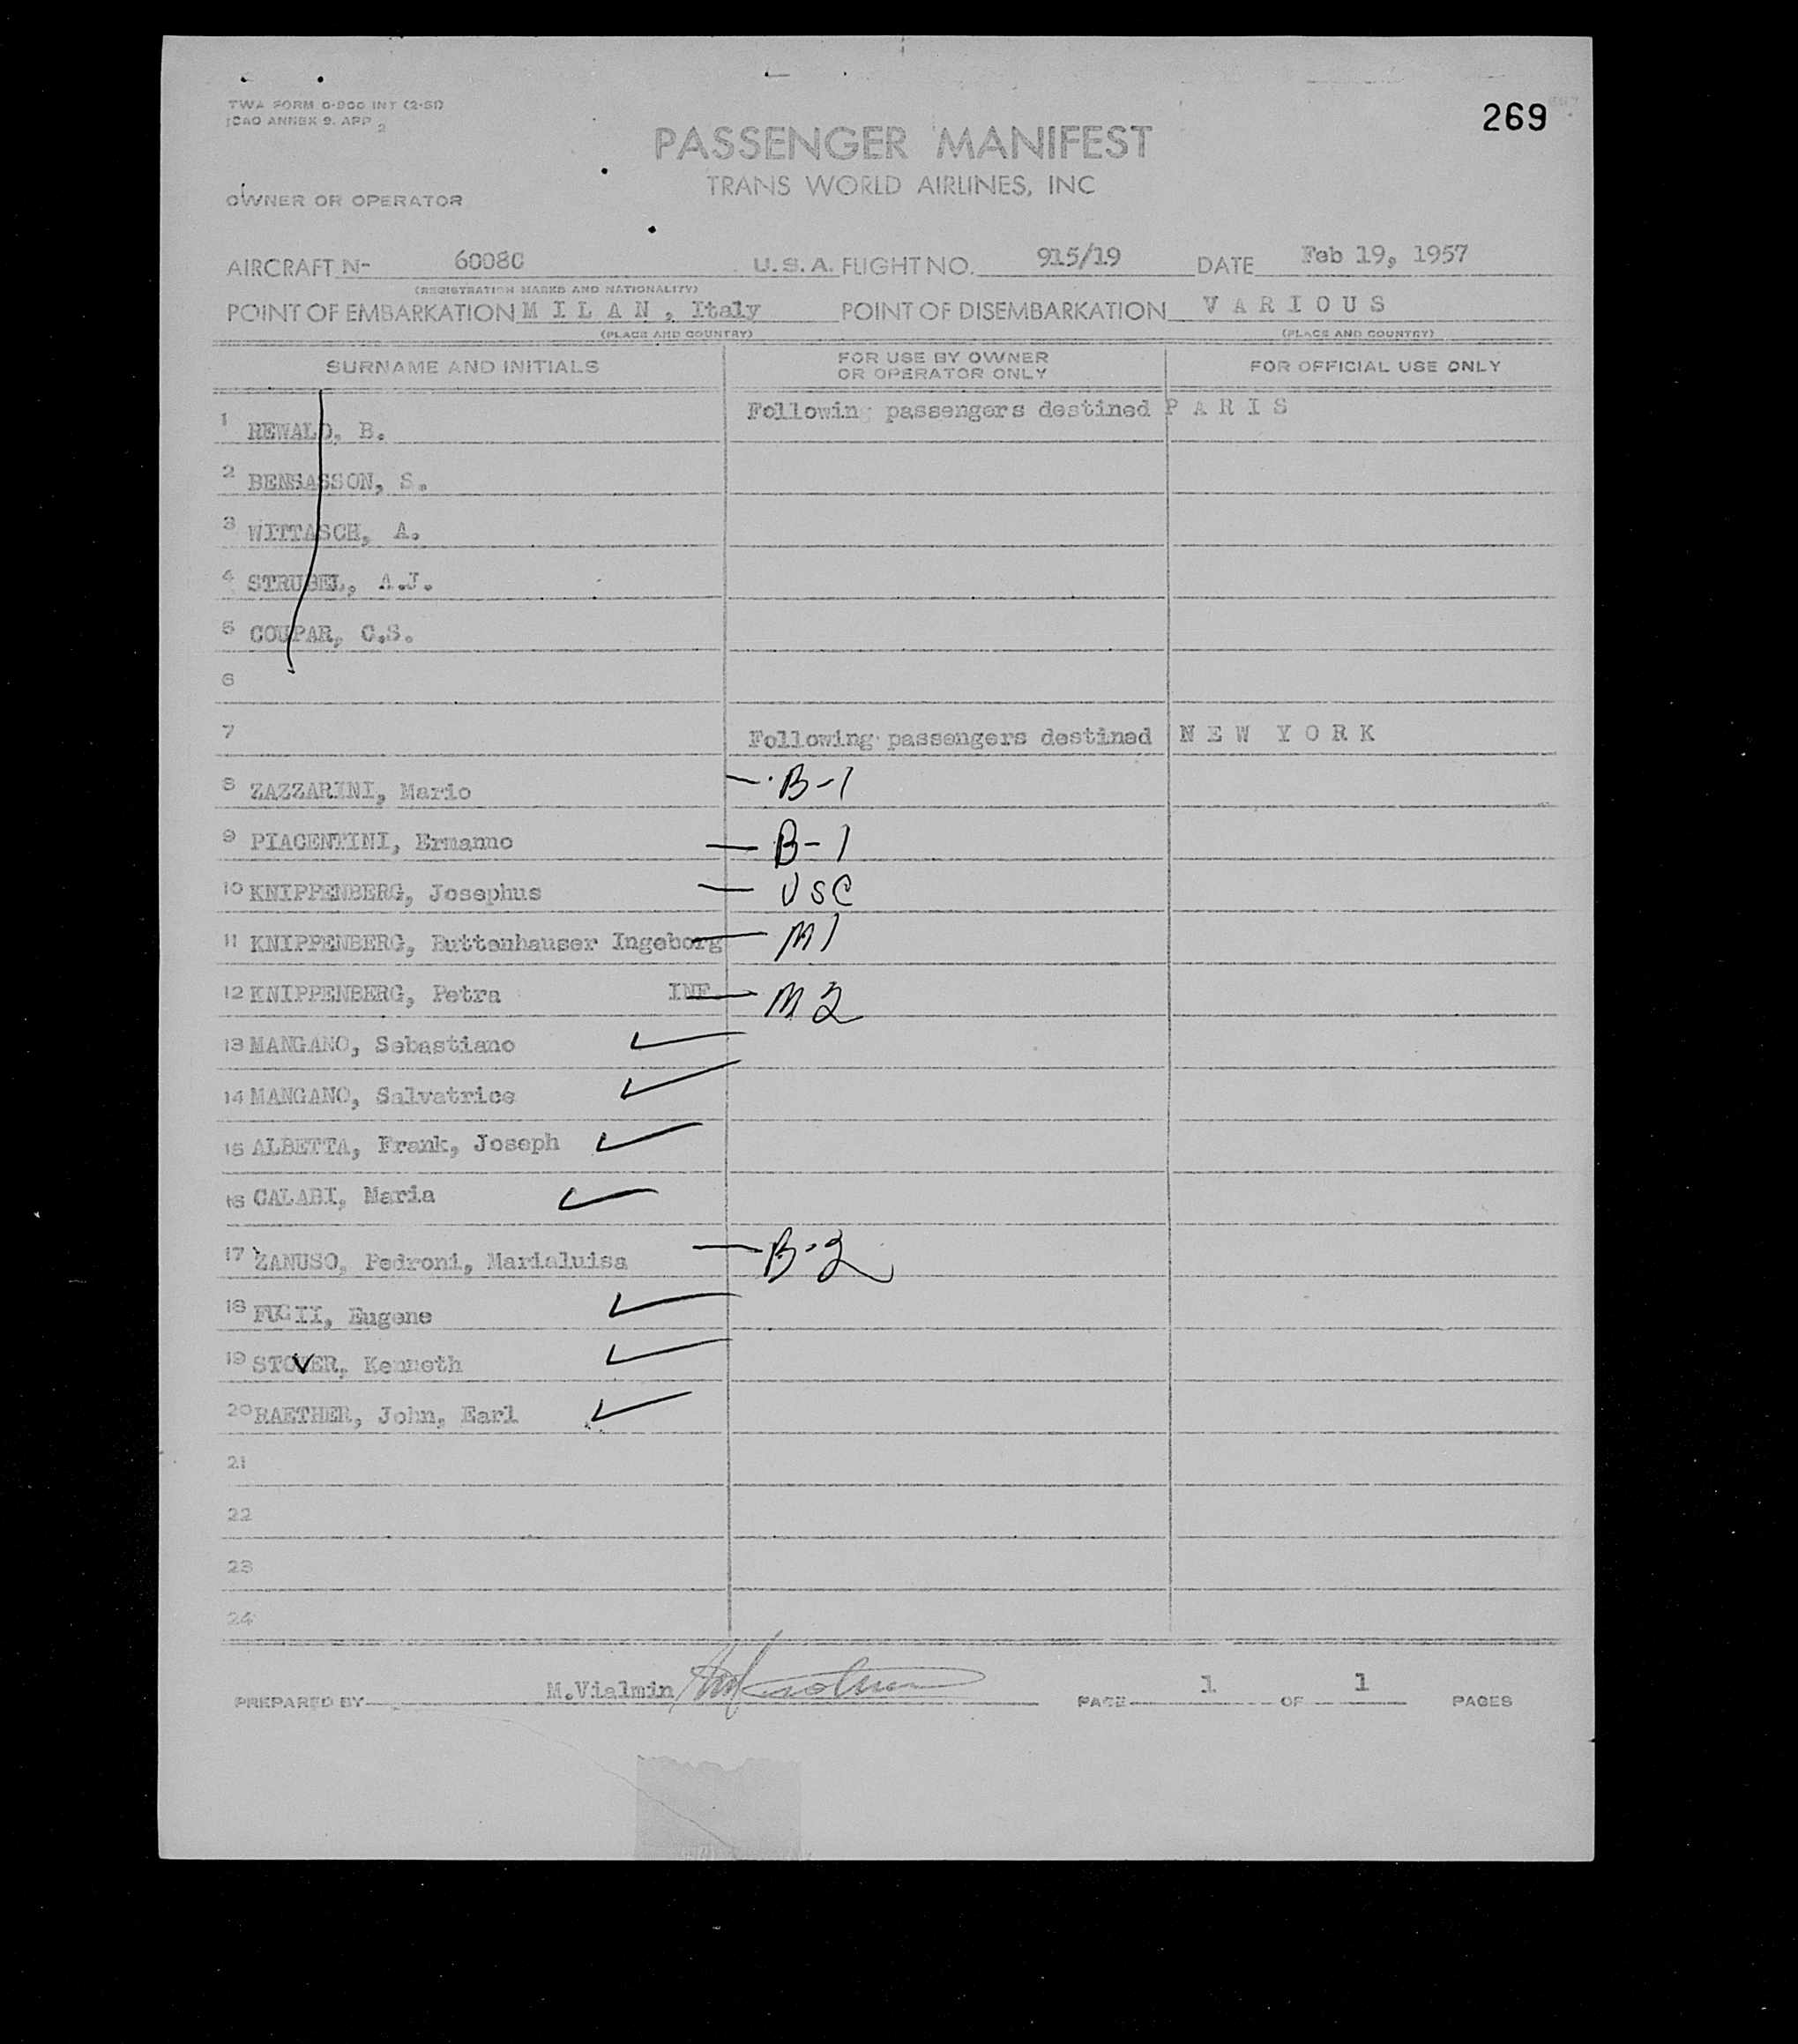 TWA FORM O-900 INT (2-51)
ICAO ANNEX 9. APP 2
269
PASSENGER MANIFEST
TRANS WORLD AIRLINES, INC
OWNER OR OPERATOR
AIRCRAFT N- 60080 U.S.A. FLIGHT NO. 915/19 DATE Feb 19, 1957
(REGISTRATION MARKS AND NATIONALITY)
POINT OF EMBARKATION M I L A N , Italy POINT OF DISEMBARKATION V A R I O U S
(PLACE AND COUNTRY) (PLACE AND COUNTRY)
SURNAME AND INITIALS FOR USE BY OWNER OR OPERATOR ONLY FOR OFFICIAL USE ONLY
Following passengers destined P A R I S
1 REWALD, B.
2 BENSASSON, S.
3 WITTASCH, A.
4 STRUBEL, A.J.
5 COUPAR, C.S.
6
7 Following passengers destined N E W Y O R K
8 ZAZZARINI, Mario B-1
9 PIACENTINI, Ermanno B-1
10 KNIPPENBERG, Josephus USC
11 KNIPPENBERG, Buttenhauser Ingeborg M1
12 KNIPPENBERG, Petra INF M2
13 MANGANO, Sebastiano
14 MANGANO, Salvatrice
15 ALBETTA, Frank, Joseph
16 CALABI, Maria
17 ZANUSO, Pedroni, Marialuisa B-2
18 FUGII, Eugene
19 STOVER, Kenneth
20 RAETHER, John, Earl
21
22
23
24
PREPARED BY M.Vialmin PAGE 1 OF 1 PAGES